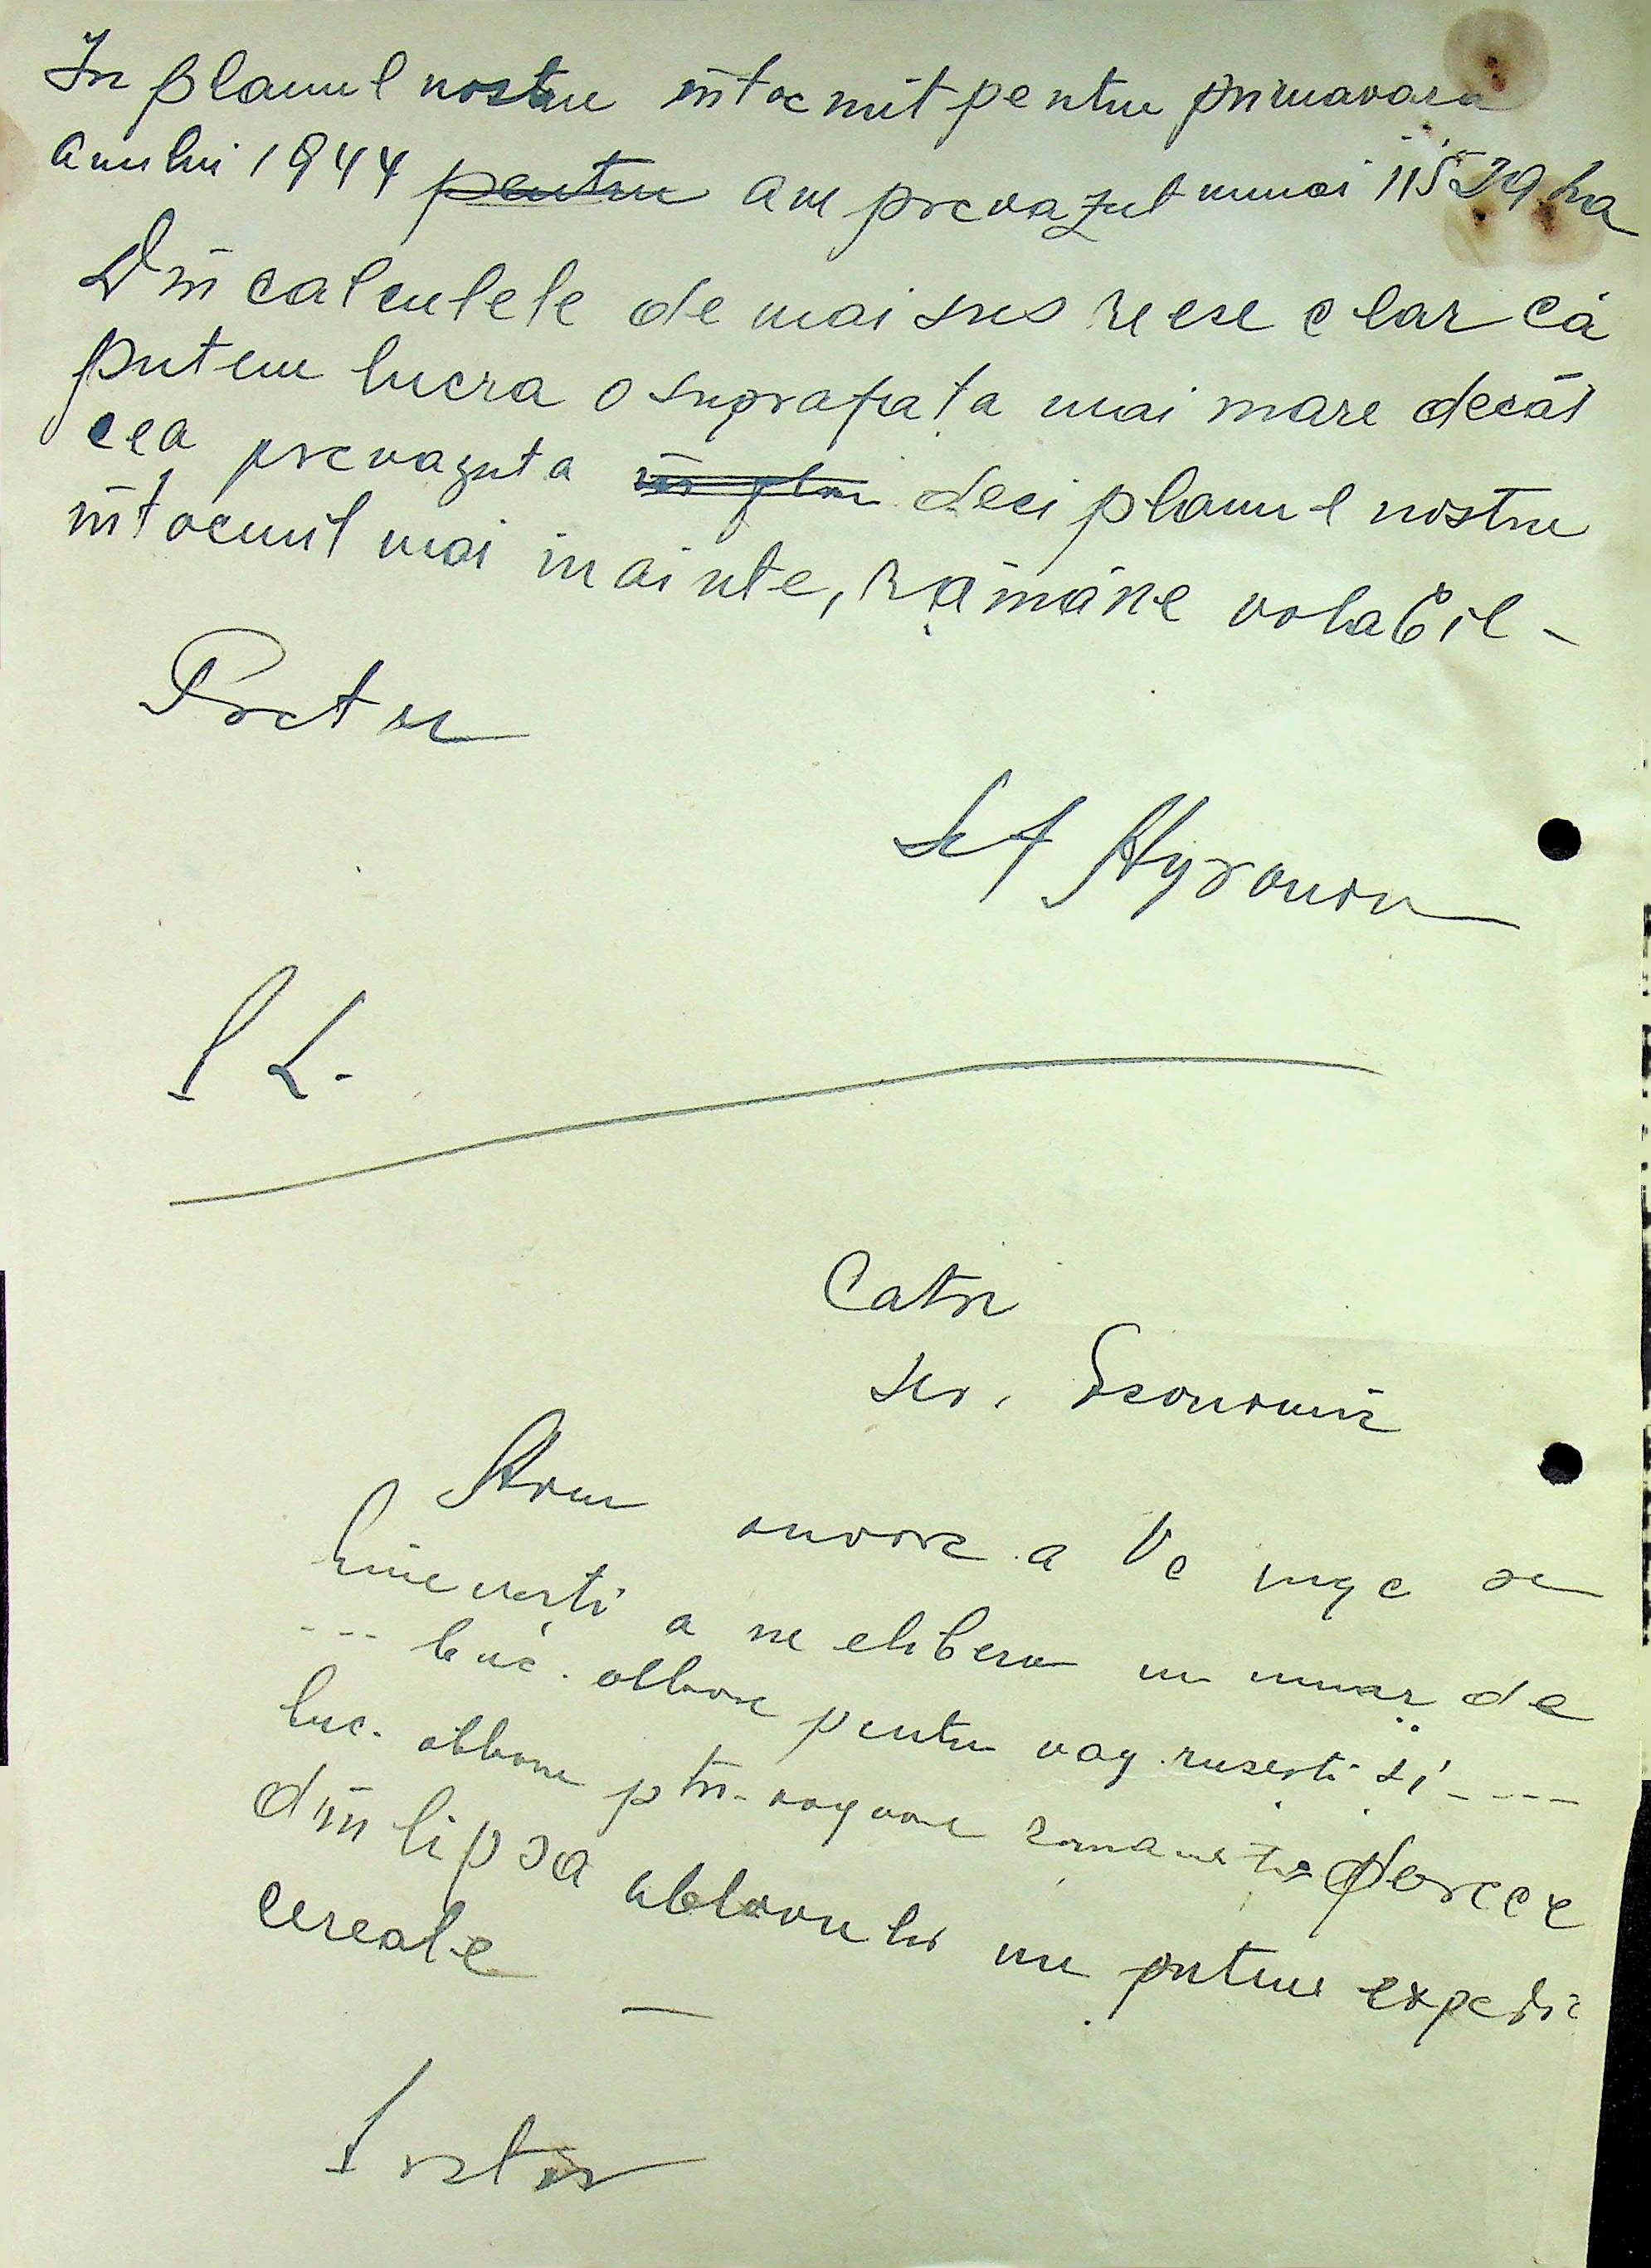 In planul nostru intocmit pentru primavara
anului 1944 pentru am prevazut numai 11529 ha
Din calculele de mai sus reese clar că
putem lucra o suprafaţa mai mare decât
cea prevazuta in plan deci planul nostru
intocmit mai inainte, rămâne valabil -
Pretor
Sef Agronom
P L.
Catre
Ser. Economic
Avem onoare a Ve ruga sa
bine voiti a ne elibera un numar de
--- buc. obloane pentru vag. rusesti si ----
buc. obloane ptr. vagoane romanesti deoarece
din lipsa obloanelor nu putem expedia
cereale —
Pretor